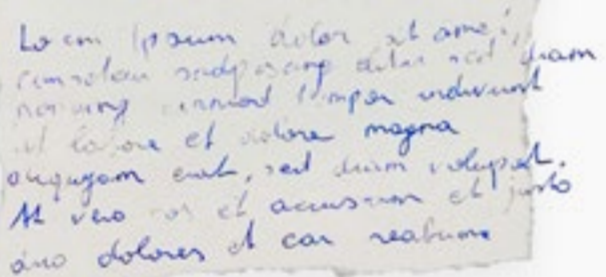 Lorem Ipsum dolor sit amet,
consetetur sadipscing elitr sed diam
nonumy eirmod tempor invidunt
ut labore et dolore magna
aliquyam erat, sed diam voluptat.
At vero eos et accusam et justo
duo dolores et ea rebum